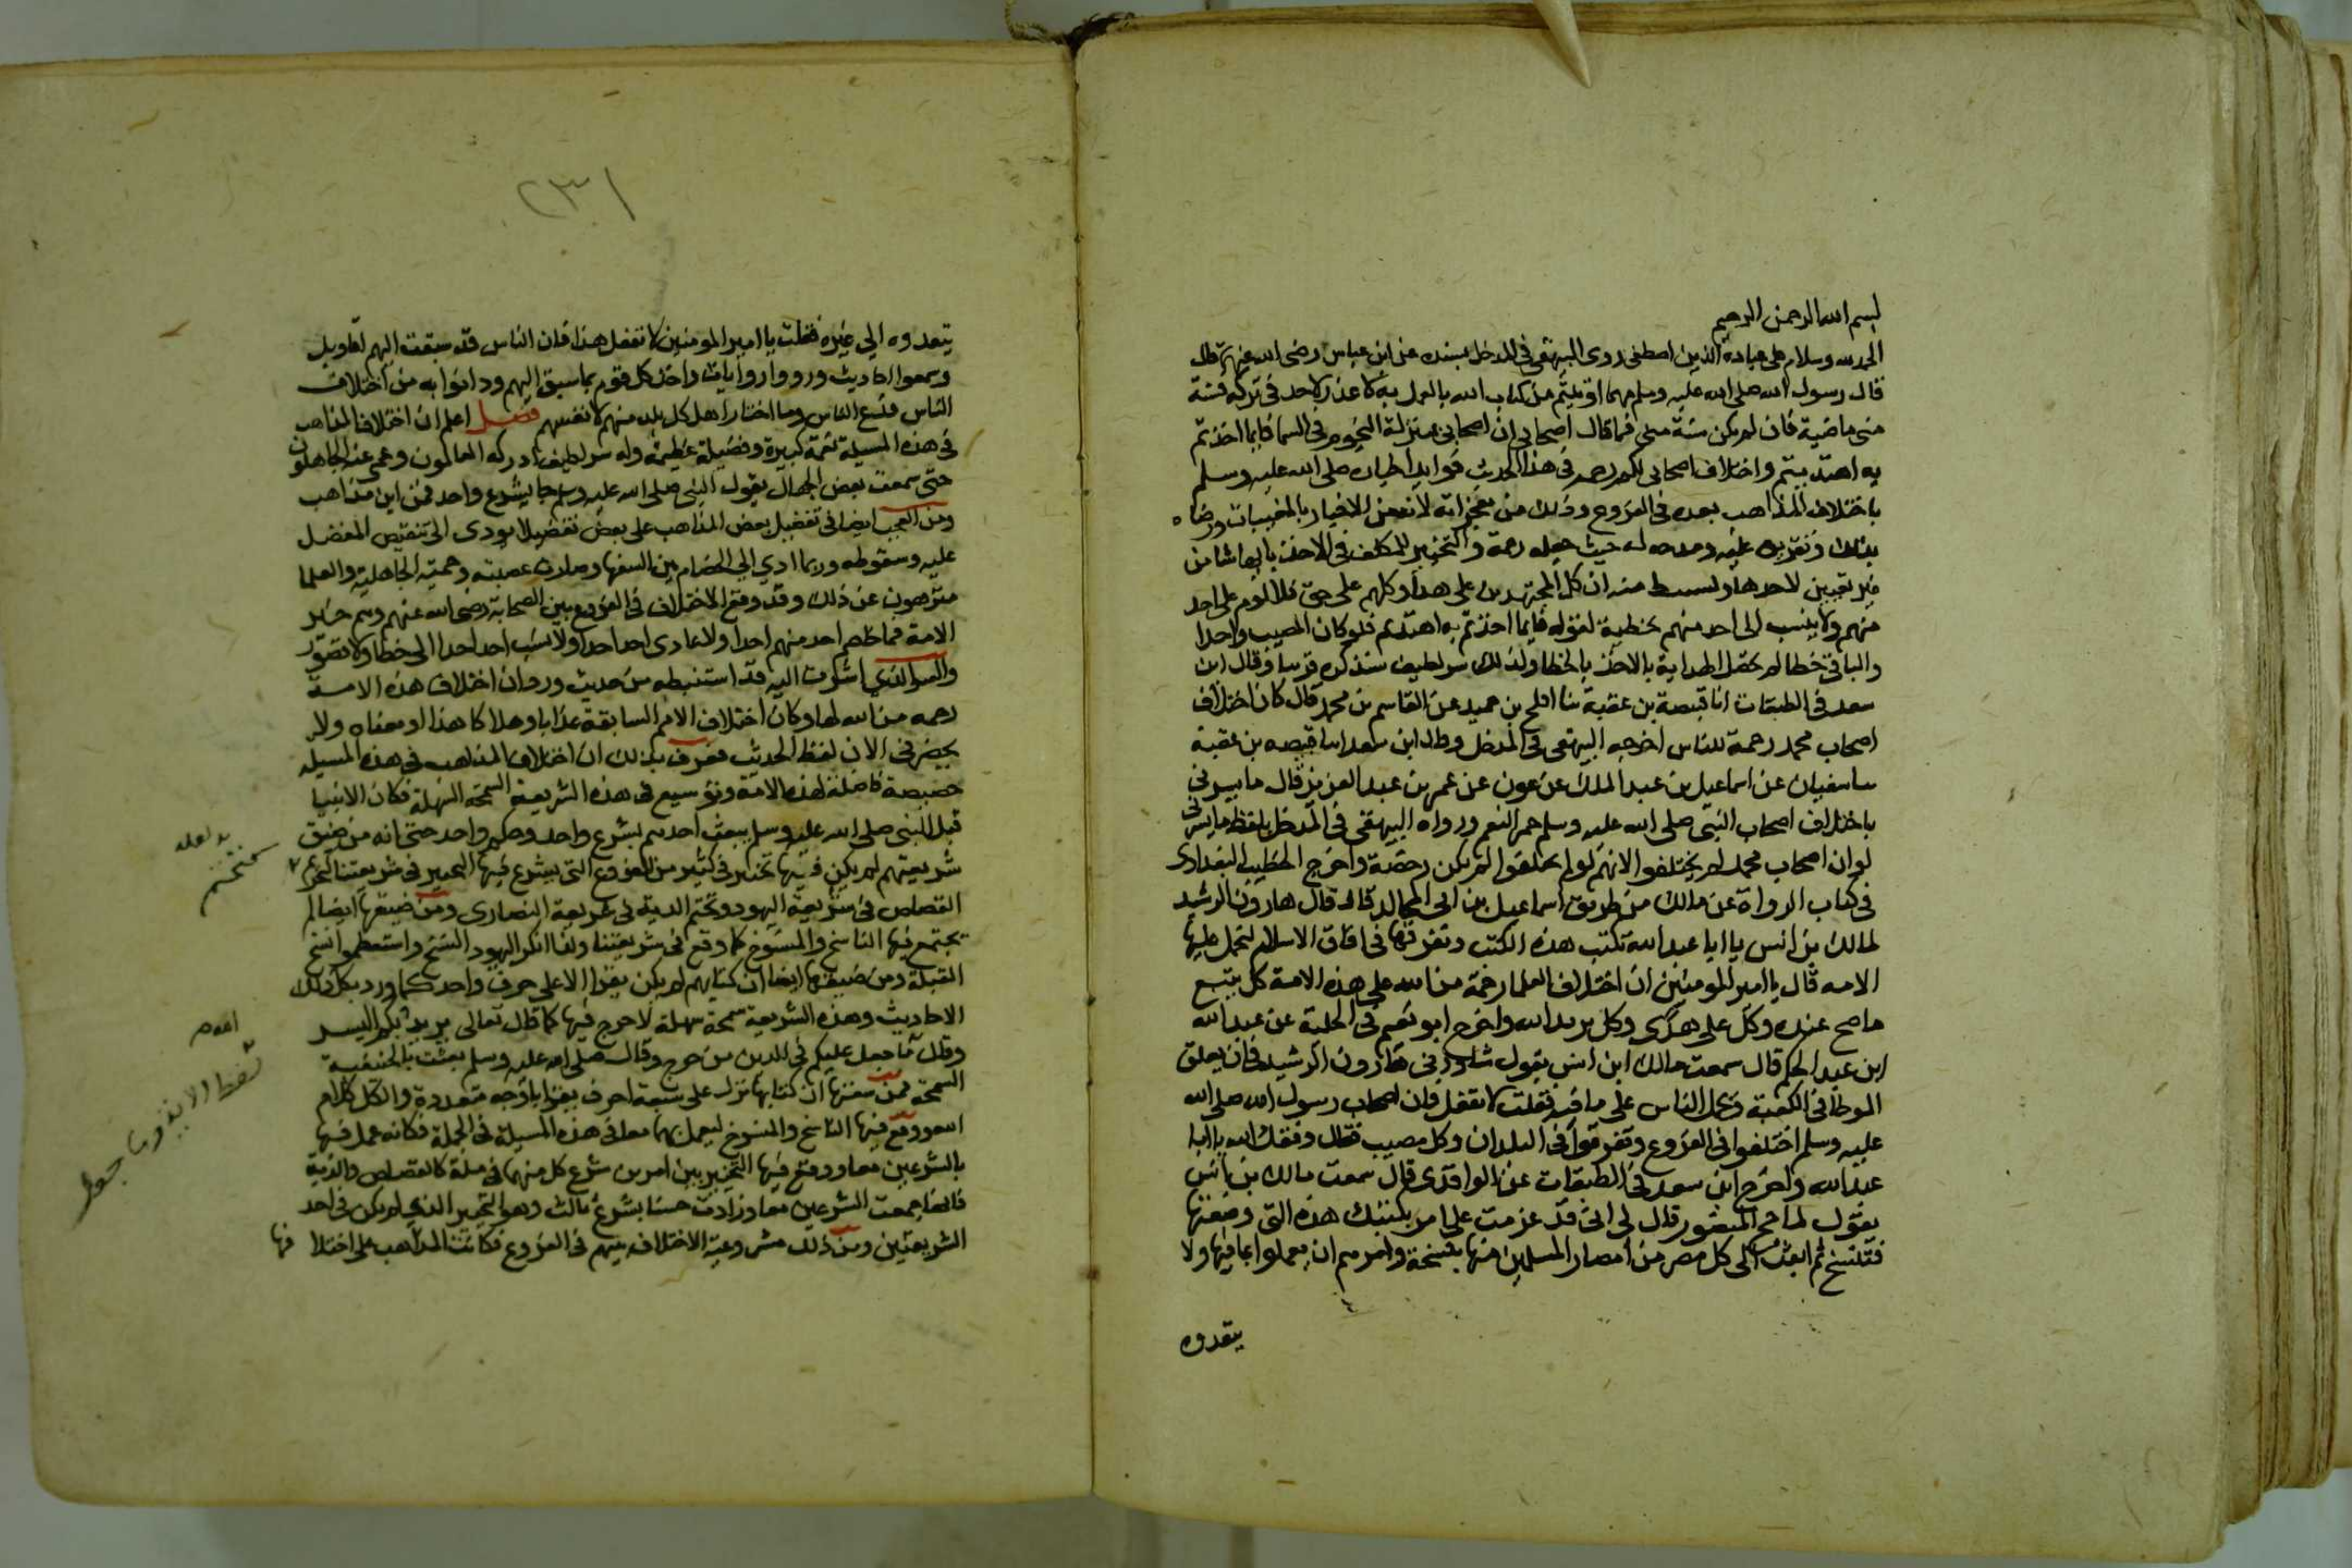 بسم الله الرحمن الرحيم
الحمد لله وسلام على عباده الذين اصطفى روى البيهقي في المدخل بسنده عن ابن عباس رضى الله عنهما قال
قال رسول الله صلى الله عليه وسلم مهما اوتيتم من كتاب الله بالعمل به لا عذر لاحد في تركه فسنة
منى ماضية فان لم يكن سنة منى فما قال اصحابي ان اصحابي بمنزلة النجوم في السما فايما اخذتم
به اهتديتم واختلاف اصحابي لكم رحمه في هذا الحديث فوايد اخباره صلى الله عليه وسلم
باختلاف المذاهب بعده في الفروع وذلك من معجزاته لانه من الاخبار بالمغيبات ورضاه
بذلك وتقريره عليه ومدحه له حيث جعله رحمة والتخيير للمكلف في الاخذ بايها شا من
غير تعيين لاحدها ويستنبط منه ان كل المجتهدين على هدا وكلهم على حق فلا لوم على احد
منهم ولا ينسب الى احد منهم تخطية لقوله فايما اخذتم به اهتديتم فلو كان المصيب واحدا
والباقي خطا لم تحصل الهداية بالاخذ بالخطا ولذلك سر لطيف سنذكره قريبا وقال ابن
سعد في الطبقات انا قبيصة بن عقبة ثنا افلح بن حميد عن القاسم بن محمد قال كان اختلاف
اصحاب محمد رحمة للناس اخرجه البيهقي في المدخل وقال ابن سعد انا قبيصه بن عقبة
سا سفيان عن اسماعيل بن عبد الملك عن عون عن عمر بن عبد العزيز قال ما يسرني
باختلاف اصحاب النبى صلى الله عليه وسلم حمر النعم ورواه البيهقى في المدخل بلفظ ما يسرنى
لو ان اصحاب محمد لم يختلفوا لانهم لو لم يختلفوا لم يكن رخصة واخرج الخطيب البغدادى
في كتاب الرواة عن مالك من طريق اسماعيل بن ابي المجالد قال قال هارون الرشيد
لمالك بن انس يا ابا عبد الله نكتب هذه الكتب ونفرقها في افاق الاسلام لنحمل عليها
الامه قال يا امير المومنين ان اختلاف العلما رحمة من الله على هذه الامة كل يتبع
ما صح عنده وكل على هدى وكل يريد الله واخرج ابو نعيم في الحلية عن عبد الله
ابن عبد الحكم قال سمعت مالك ابن انس يقول شاورني هارون الرشيد في ان يعلق
الموطا في الكعبة ويحمل الناس على ما فيه فقلت لا تفعل فان اصحاب رسول الله صلى الله
عليه وسلم اختلفوا في الفروع وتفرقوا في البلدان وكل مصيب فقال وفقك الله يا ابا
عبد الله واخرج ابن سعد في الطبقات عن الواقدى قال سمعت مالك بن انس
يقول لما حج المنصور قال لى انى قد عزمت على ان امر بكتبك هذه التى وضعتها
فتنسخ ثم ابعث الى كل مصر من امصار المسلمين منها بنسخة وامرهم ان يعملوا بما فيها ولا
يتعدوه
٢٣١
يتعدوه الى غيره فقلت يا امير المومنين لا تفعل هذا فان الناس قد سبقت اليهم اقاويل
وسمعوا احاديث ورووا روايات واخذ كل قوم بما سبق اليهم ودانوا به من اختلاف
الناس فدع الناس وما اختار اهل كل بلد منهم لانفسهم فصل اعلم ان اختلاف المذاهب
في هذه المسيلة نعمة كبيرة وفضيلة عظيمة وله سر لطيف ادركه العالمون وعمى عنه الجاهلون
حتى سمعت بعض الجهال يقول النبى صلى الله عليه وسلم جا بشرع واحد فمن اين مذاهب
ومن العجب ايضا في تفضيل بعض المذاهب على بعض تفضيلا يودى الى تنقيص المفضل
عليه وسقوطه وربما ادى الى الخصام بين السفها وصارت عصبية وحمية الجاهلية والعلما
منزهون عن ذلك وقد وقع الاختلاف في الفروع بين الصحابة رضى الله عنهم وهم خير
الامة فما خاصم احد منهم احدا ولا عادى احد احدا ولا نسب احد احدا الى خطا ولا قصور
والسر الذي اشرت اليه قد استنبطه من حديث ورد ان اختلاف هذه الامة
رحمه من الله لها وكان اختلاف الامم السابقة عذابا وهلاكا هذا او معناه ولا
يحضرني الان لفظ الحديث فعرف بذلك ان اختلاف المذاهب في هذه المسيله
خصيصة فاضلة لهذه الامة وتوسيع في هذه الشريعة السمحة السهلة فكان الانبيا
قبل النبى صلى الله عليه وسلم يبعث احدهم بشرع واحد وحكم واحد حتى انه من ضيق
شريعتهم لم يكن فيها تخيير في كثير من الفروع التى يشرع فيها التخيير في شريعتنا
القصاص في شريعة اليهود وتحتم الدية في شريعة النصارى ومن ضيقها ايضا لم
يجتمع فيها الناسخ والمنسوخ كما وقع في شريعتنا ولذا انكر اليهود النسخ واستعظموا نسخ
القبلة ومن ضيقها ايضا ان كتابهم لم يكن يقرا الا على حرف واحد كما ورد بكل ذلك
الاحاديث وهذه الشريعة سمحة سهلة لا حرج فيها كما قال تعالى يريد بكم اليسر
وقال ما جعل عليكم في الدين من حرج وقال صلى الله عليه وسلم بعثت بالحنفية
السمحة فمن سعتها ان كتابها نزل على سبعة احرف يقرا باوجه متعددة والكل كلام
الله ووقع فيها الناسخ والمنسوخ ليعمل بهما معا في هذه المسيلة في الجملة فكانه عمل فيها
بالشرعين معا ووقع فيها التخيير بين امرين شرع كل منهما في ملة كالقصاص والدية
فكانها جمعت الشرعين معا وزادت حسنا بشرع ثالث وهو التخيير الذي لم يكن في احد
الشريعتين ومن ذلك مشروعية الاختلاف بينهم في الفروع فكانت المذاهب على اختلافها
لعله
كتحتم